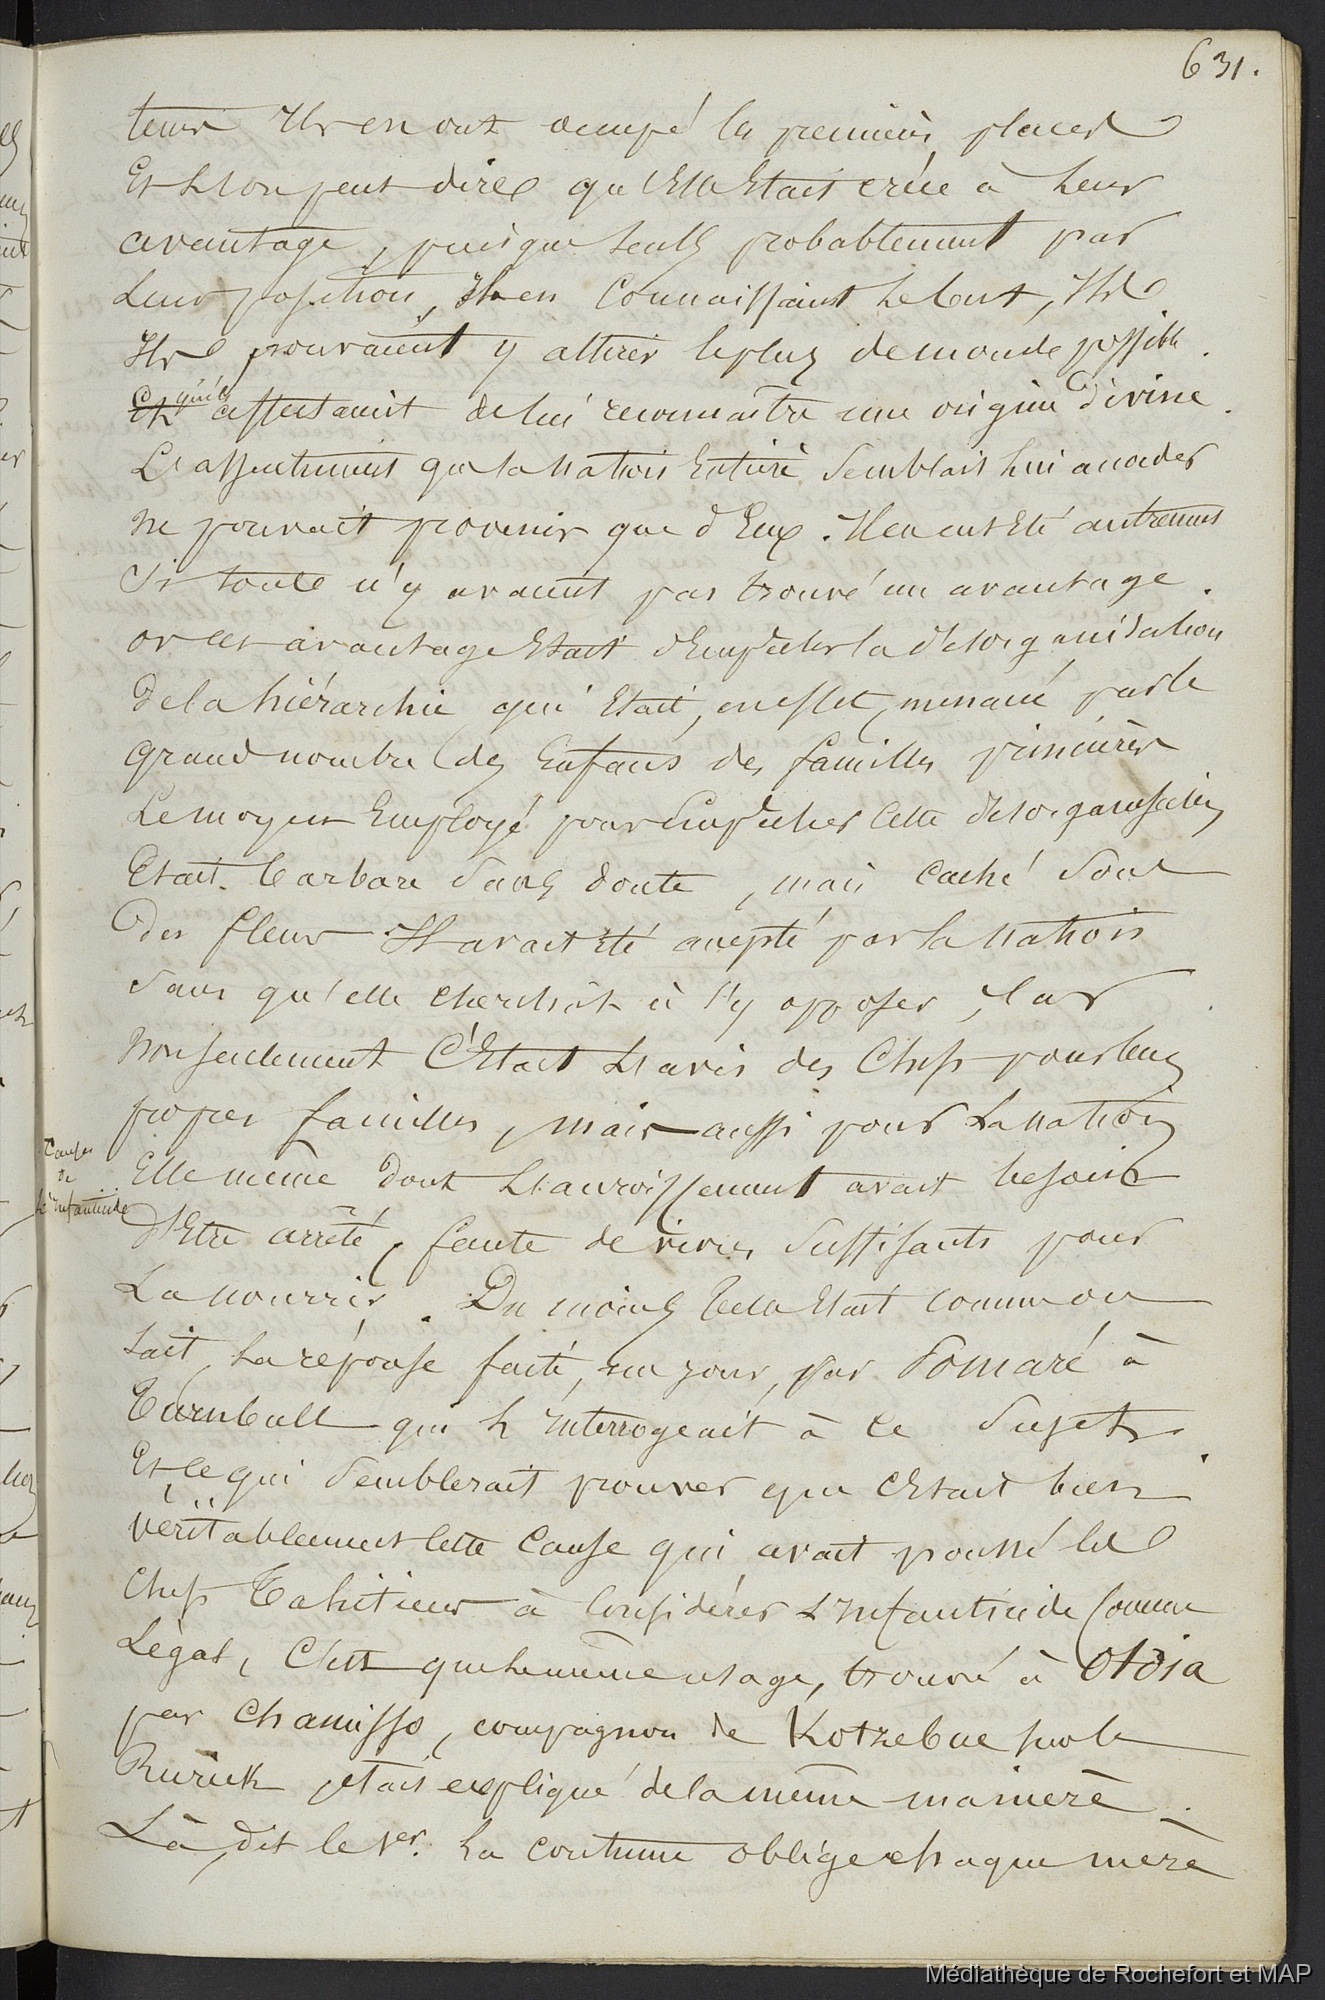 631.
teurs Ils en ont occupé les premières places
Et L'on peut dire qu'Elle Etait créée à Leur
avantage, puisque seuls probablement par
Leur position, Ils en Connaissaient Le but, Ils
Ils pouvaient y attirer le plus de monde possible.
Et qu'ils affectaient de lui reconnaître une origine divine.
L'assentiment que la Nation Entière Semblait lui accorder
ne pouvait provenir que d'Eux. Il en eut Eté autrement
Si tous n'y avaient pas trouvé un avantage.
or cet avantage Etait d'Empêcher la désorganisation
de la hiérarchie qui Etait, en effet, menacée par le
grand nombre des Enfans des familles princières
Le moyen Employé pour Empêcher Cette désorganisation
Etait barbare Sans doute, mais caché Sous
des fleurs Il avait Eté accepté par la Nation
Sans qu'elle cherchât à s'y opposer, Car
non seulement C'Etait L'avis des Chefs pour leurs
propres familles, mais aussi pour La Nation
Causes
de
L'infanticide
Elle même dont L'accroissement avait besoin
d'Etre arrêté, faute de vivres Suffisants pour
La nourrir. Du moins telle Etait comme on
sait, La réponse faite, un jour, par Pomaré à
Turnbull qui L'interrogeait à ce Sujet.
Et ce qui Semblerait prouver que c'Etait bien
véritablement Cette Cause qui avait poussé les
Chefs Tahitiens à Considérer L'infanticide Comme
Légal, C'est que le même usage, trouvé à Otdia
par Chamisso, compagnon de Kotzebue sur le
Rurick, était expliqué de la même manière.
Là, dit le 1er. La coutume oblige chaque mère
Médiathèque de Rochefort et MAP